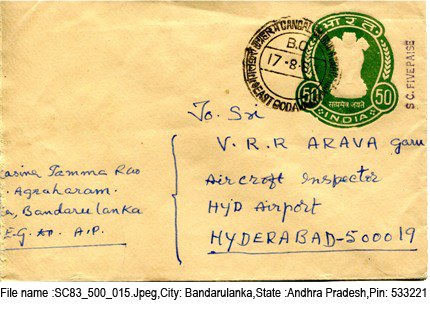 भारत
50 50
सत्यमेव जयते
INDIA
S.C. FIVE PAISE
B.O
17-8-
EAST GODAV
To. Sri
V. R. R ARAVA garu
Aircroft Inspector
HYD Airport
HYDERABAD-500019
Tamma Rao
Agraharam.
Bandarulanka
E.G. A.P.
File name :SC83_500_015.Jpeg,City: Bandarulanka,State :Andhra Pradesh,Pin: 533221